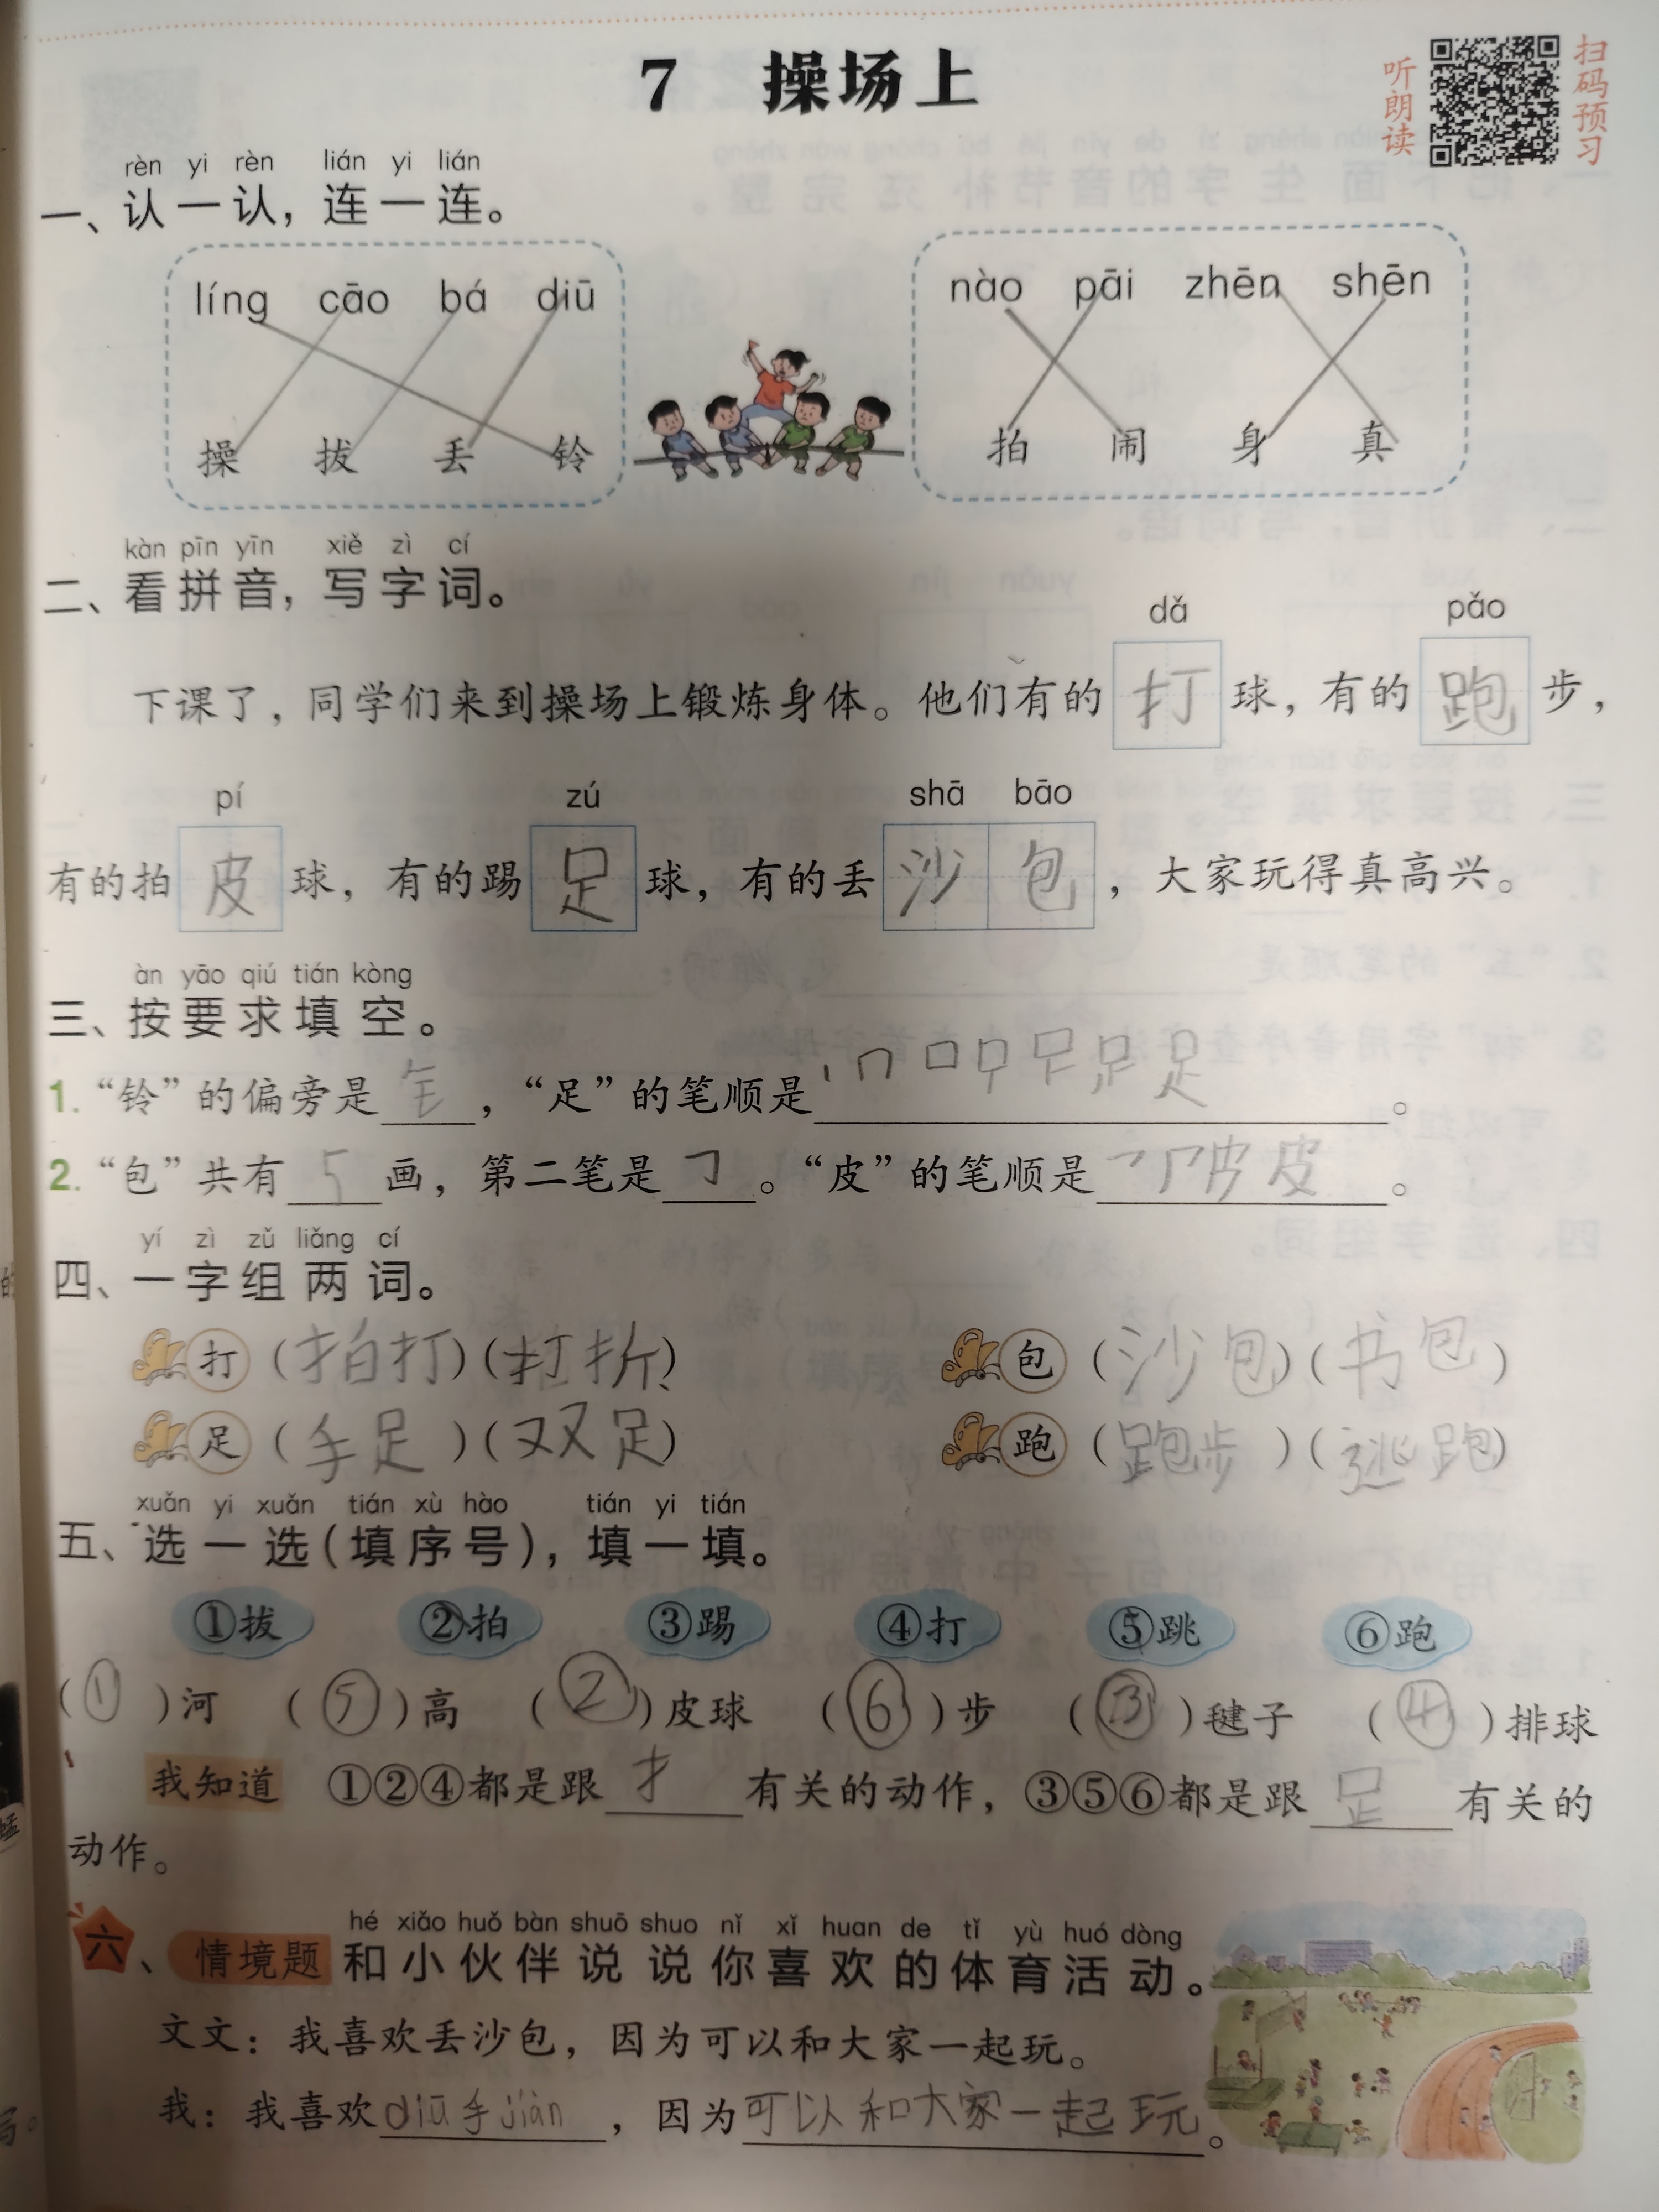 7 操场上
听朗读 扫码预习
rèn yi rèn lián yi lián
一、认一认，连一连。
líng cāo bá diū
nào pāi zhēn shēn
操 拔 丢 铃
拍 闹 身 真
kàn pīn yīn xiě zì cí
二、看拼音，写字词。
dǎ pǎo
下课了，同学们来到操场上锻炼身体。他们有的打球，有的跑步，
pí zú shā bāo
有的拍皮球，有的踢足球，有的丢沙包，大家玩得真高兴。
àn yāo qiú tián kòng
三、按要求填空。
1.“铃”的偏旁是钅，“足”的笔顺是丨 冂 口 足。
2.“包”共有5画，第二笔是㇆。“皮”的笔顺是皮。
yí zì zǔ liǎng cí
四、一字组两词。
打（拍打）（打折） 包（沙包）（书包）
足（手足）（双足） 跑（跑步）（逃跑）
xuǎn yi xuǎn tián xù hào tián yi tián
五、选一选（填序号），填一填。
①拔 ②拍 ③踢 ④打 ⑤跳 ⑥跑
（①）河 （⑤）高 （②）皮球 （⑥）步 （③）毽子 （④）排球
我知道 ①②④都是跟扌有关的动作，③⑤⑥都是跟足有关的
动作。
hé xiǎo huǒ bàn shuō shuo nǐ xǐ huan de tǐ yù huó dòng
六、情境题 和小伙伴说说你喜欢的体育活动。
文文：我喜欢丢沙包，因为可以和大家一起玩。
我：我喜欢diū手jiàn，因为可以和大家一起玩。